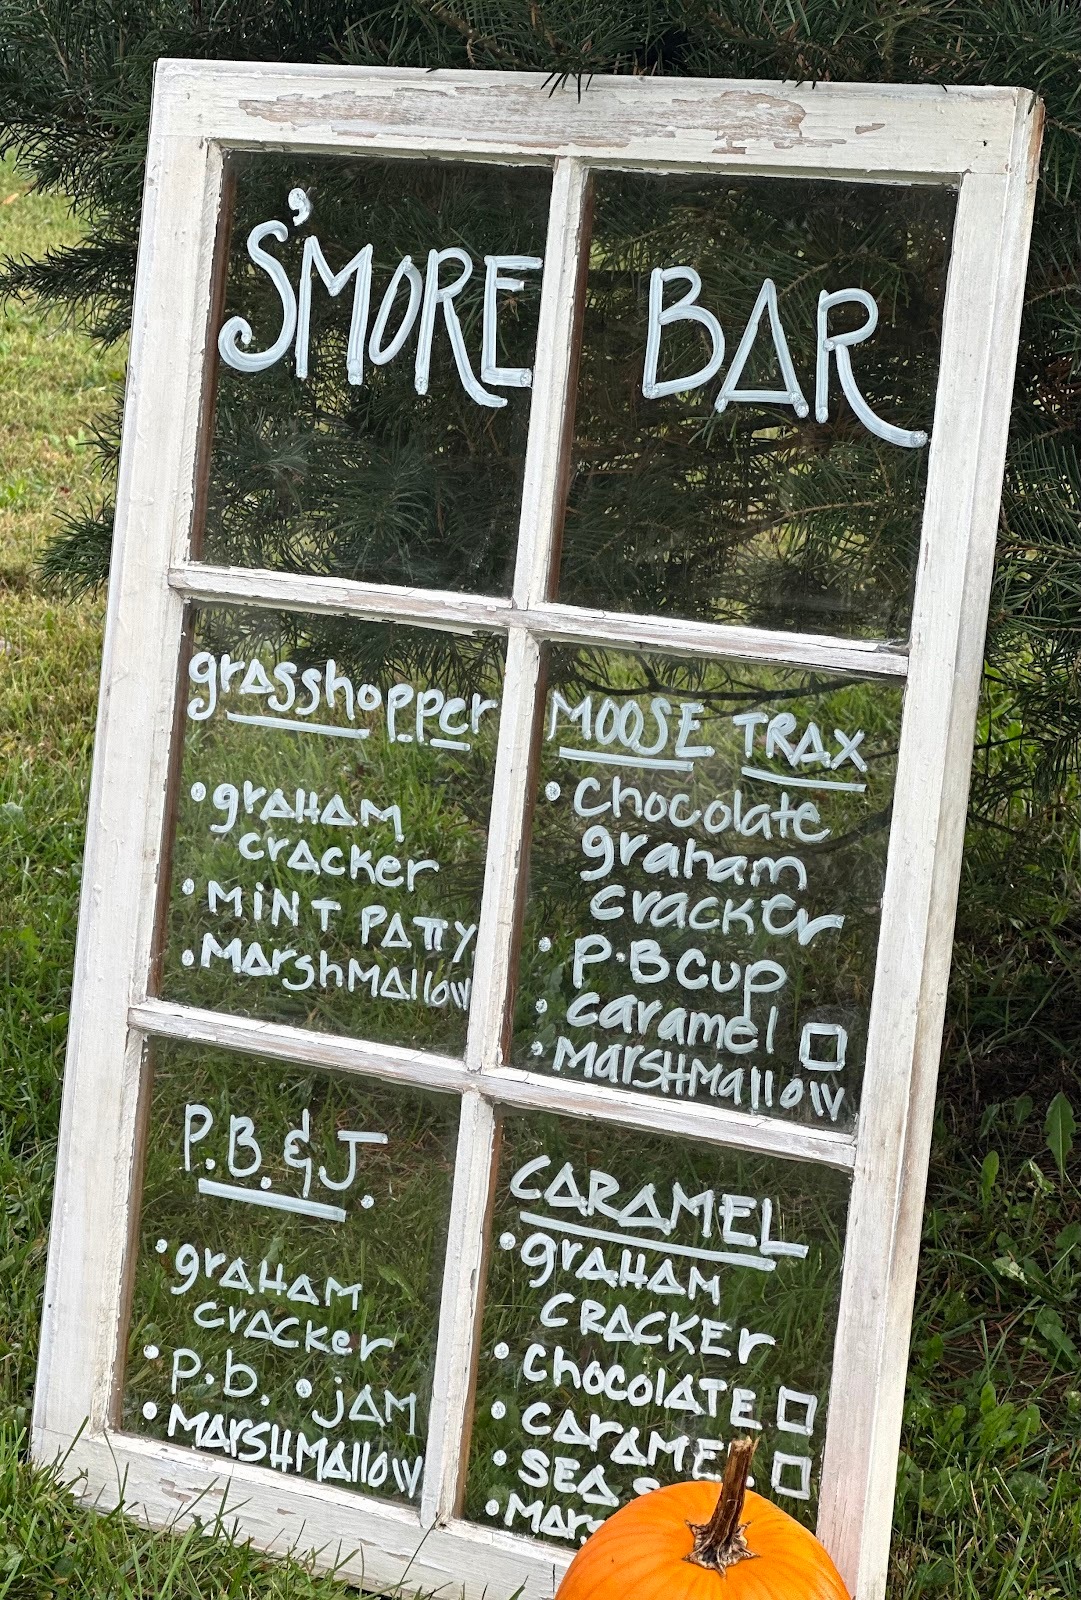 S'MORE BAR
grasshopper
• graHAM
cracker
• MiNT PATTY
• MarshMallow
MOOSE TRAX
• Chocolate
graham
cracker
• P•B CUP
• caramel □
• MARSHMallow
P.B. & J.
• graHAM
cracker
• p.b. • jAM
• MARSHMAllow
CARAMEL
• graHAM
CRACKEr
• ChocolATE □
• CARAMEL □
• SEA